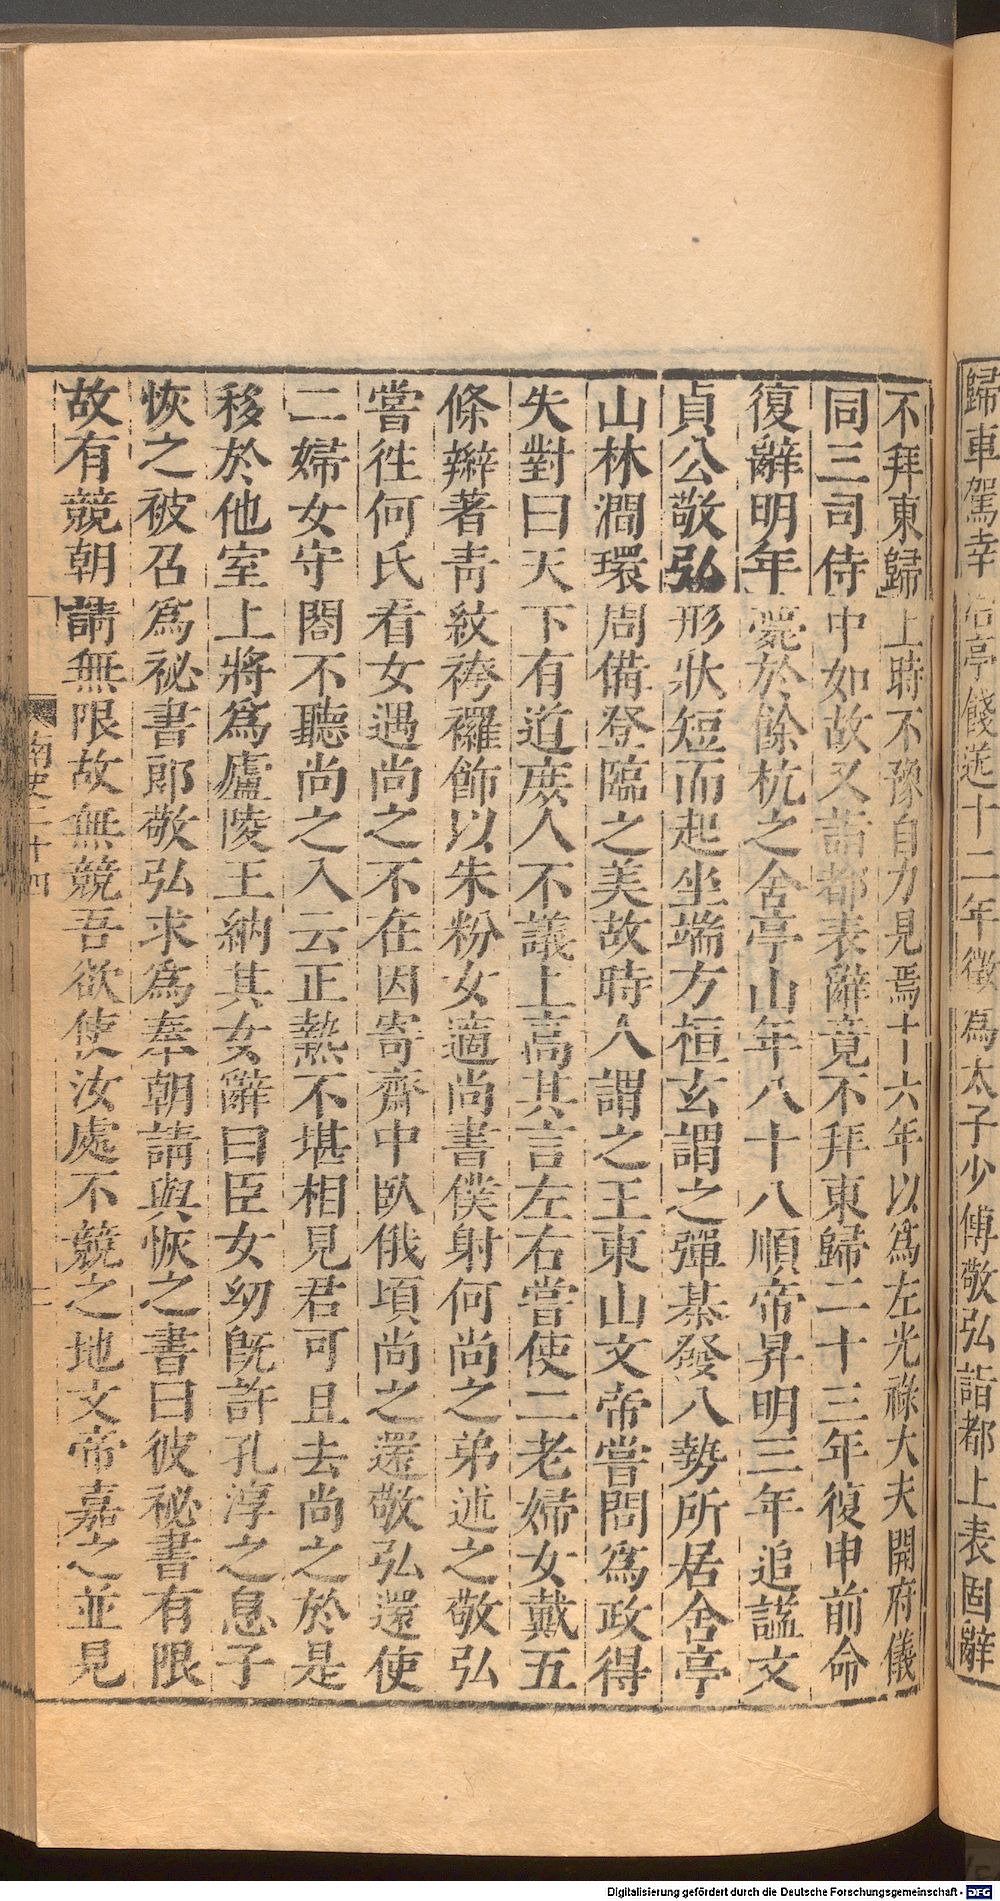 歸車駕幸冶亭餞送十二年徵為太子少傅敬弘詣都上表固辭
不拜東歸上時不豫自力見焉十六年以為左光祿大夫開府儀
同三司侍中如故又詣都表辭竟不拜東歸二十三年復申前命
復辭明年薨於餘杭之舍亭山年八十八順帝昇明三年追諡文
貞公敬弘形狀短而起坐端方桓玄謂之彈棊發八勢所居舍亭
山林澗環周備登臨之美故時人謂之王東山文帝嘗問為政得
失對曰天下有道庶人不議上高其言左右嘗使二老婦女戴五
條辮著青紋袴襬飾以朱粉女適尚書僕射何尚之弟述之敬弘
嘗往何氏看女遇尚之不在因寄齋中臥俄頃尚之還敬弘還使
二婦女守閤不聽尚之入云正熱不堪相見君可且去尚之於是
移於他室上將為廬陵王納其女辭曰臣女幼旣許孔淳之息子
恢之被召爲祕書郎敬弘求爲奉朝請與恢之書曰彼祕書有限
故有競朝請無限故無競吾欲使汝處不競之地文帝嘉之並見
南史二十四
二
Digitalisierung gefördert durch die Deutsche Forschungsgemeinschaft - DFG